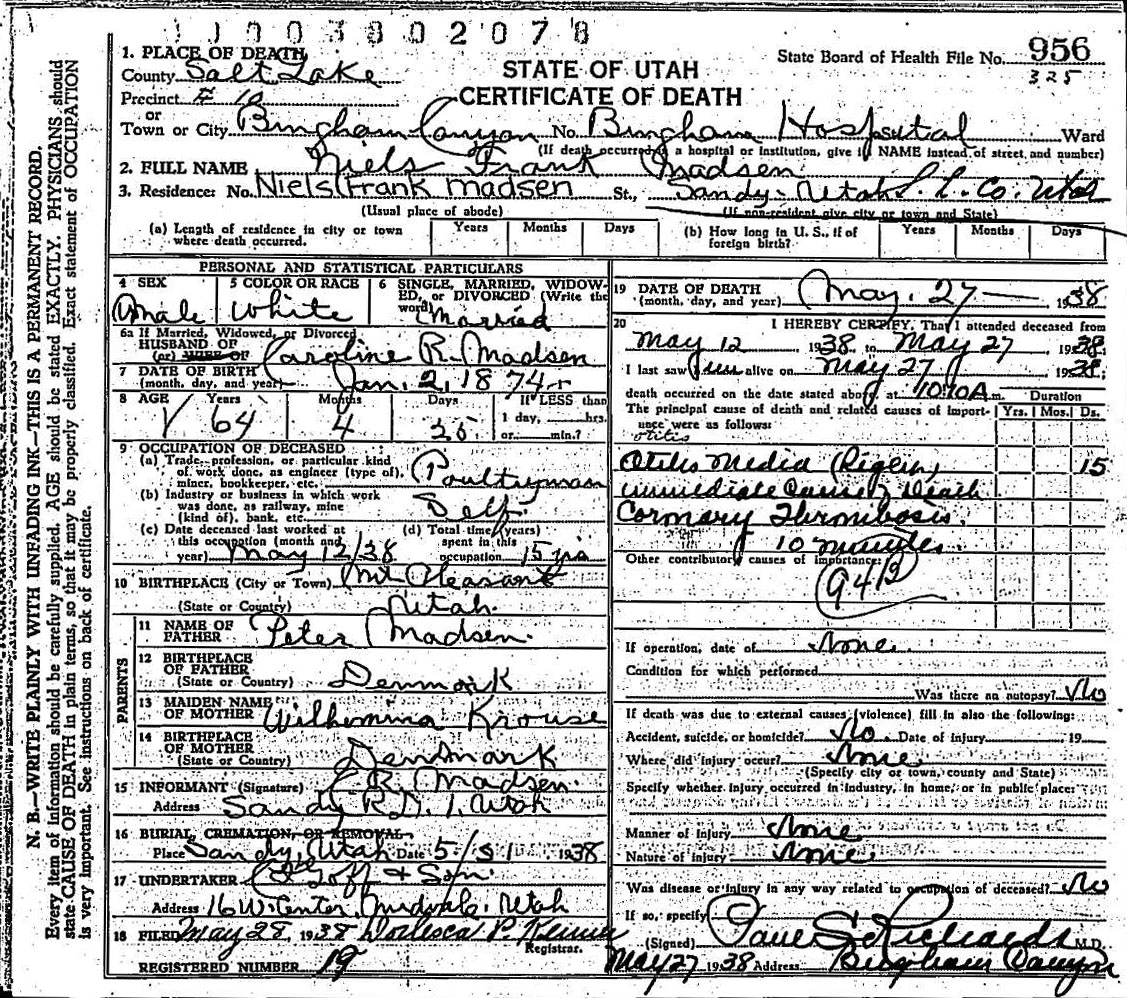 1 1 0 0 3 8 0 2 0 7 8
N. B.—WRITE PLAINLY WITH UNFADING INK—THIS IS A PERMANENT RECORD.
Every item of information should be carefully supplied. AGE should be stated EXACTLY. PHYSICIANS should
state CAUSE OF DEATH in plain terms, so that it may be properly classified. Exact statement of OCCUPATION
is very important. See instructions on back of certificate.
STATE OF UTAH
CERTIFICATE OF DEATH
State Board of Health File No. 956
325
1. PLACE OF DEATH
County Salt Lake
Precinct # 10
or
Town or City Bingham Canyon No. Bingham Hospital Ward
(If death occurred in a hospital or institution, give its NAME instead of street and number)
2. FULL NAME Niels Frank Madsen
3. Residence: No. Niels Frank Madsen St., Sandy Utah S. L. Co. Utah
(Usual place of abode) (If non-resident give city or town and State)
(a) Length of residence in city or town where death occurred. Years Months Days
(b) How long in U. S., if of foreign birth? Years Months Days
PERSONAL AND STATISTICAL PARTICULARS
4 SEX Male
5 COLOR OR RACE White
6 SINGLE, MARRIED, WIDOWED, or DIVORCED (Write the word) Married
6a If Married, Widowed, or Divorced
HUSBAND OF
(or) WIFE OF Caroline R. Madsen
7 DATE OF BIRTH
(month, day, and year) Jan. 2, 1874
8 AGE Years 64 Months 4 Days 25 If LESS than 1 day, hrs. or min.?
9 OCCUPATION OF DECEASED
(a) Trade, profession, or particular kind of work done, as engineer (type of), miner, bookkeeper, etc. Poultryman
(b) Industry or business in which work was done, as railway, mine (kind of), bank, etc. Self
(c) Date deceased last worked at this occupation (month and year) May 12/38
(d) Total time (years) spent in this occupation 15 yrs
10 BIRTHPLACE (City or Town) Mt Pleasant
(State or Country) Utah
PARENTS
11 NAME OF FATHER Peter Madsen
12 BIRTHPLACE OF FATHER
(State or Country) Denmark
13 MAIDEN NAME OF MOTHER Wilhemina Krouse
14 BIRTHPLACE OF MOTHER
(State or Country) Denmark
15 INFORMANT (Signature) C R. Madsen
Address Sandy R.D. 1. Utah
16 BURIAL, CREMATION, OR REMOVAL
Place Sandy, Utah Date 5/31 1938
17 UNDERTAKER Goff & Son
Address 16 W. Center, Midvale, Utah
18 FILED May 28, 1938
Registrar.
REGISTERED NUMBER 19
19 DATE OF DEATH
(month, day, and year) May, 27 1938
20 I HEREBY CERTIFY, That I attended deceased from
May 12 1938, to May 27 1938.
I last saw him alive on May 27 1938
death occurred on the date stated above, at 1010 A m. Duration
The principal cause of death and related causes of importance were as follows: Yrs. Mos. Ds.
otitis
Otitis Media (Right) 15
immediate Cause of Death
Coronary Thrombosis.
10 minutes
Other contributory causes of importance:
94B
If operation, date of None
Condition for which performed
Was there an autopsy? No
If death was due to external causes (violence) fill in also the following:
Accident, suicide, or homicide? No Date of injury 19
Where did injury occur? None
(Specify city or town, county and State)
Specify whether injury occurred in industry, in home, or in public place:
Manner of injury None
Nature of injury None
Was disease or injury in any way related to occupation of deceased? No
If so, specify
(Signed) Paul S. Richards M.D.
May 27 1938 Address Bingham Canyon